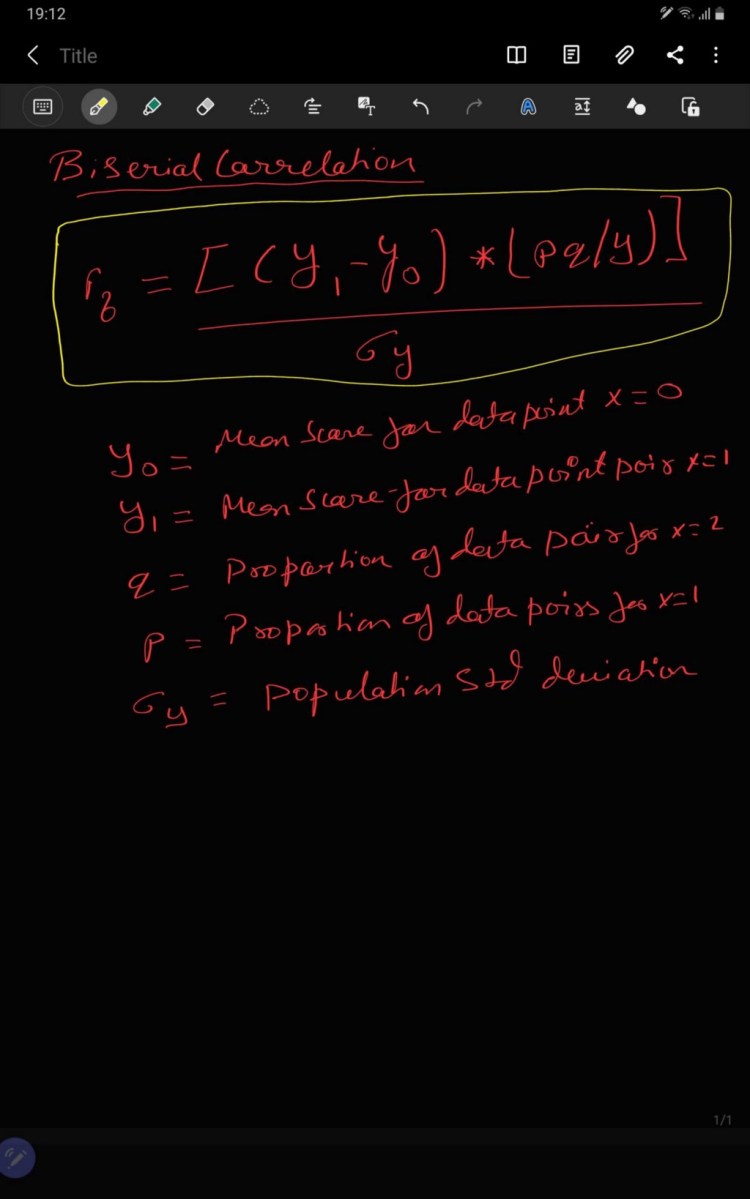 19:12
Title
Biserial Correlation
r_b = [(y₁-y₀) * (pq/y)]
σy
y₀ = Mean Score for data point x = 0
y₁ = Mean Score for data point pair x=1
q = Proportion of data pair for x=2
p = Proportion of data pairs for x=1
σy = Population Std deviation
1/1